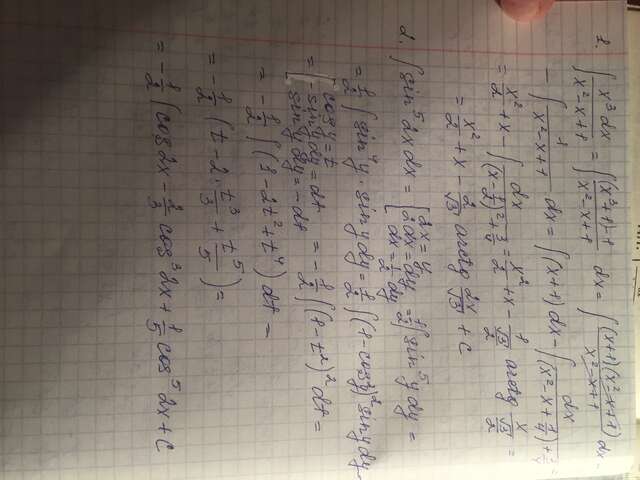 1. ∫ x³dx / (x²-x+1) = ∫ ((x³+1)-1) / (x²-x+1) dx = ∫ (x+1)(x²-x+1) / (x²-x+1) dx -
- ∫ 1 / (x²-x+1) dx = ∫ (x+1) dx - ∫ dx / ((x²-x+1/4)+3/4) =
= x²/2 + x - ∫ dx / ((x-1/2)²+3/4) = x²/2 + x - 1/(√3/2) arctg x/(√3/2) =
= x²/2 + x - 2/√3 arctg 2x/√3 + C
2. ∫ sin⁵ 2x dx = [2x = y, 2dx = dy, dx = 1/2 dy] = 1/2 ∫ sin⁵ y dy =
= 1/2 ∫ sin⁴ y · sin y dy = 1/2 ∫ (1-cos² y)² sin y dy =
= [cos y = t, -sin y dy = dt, sin y dy = -dt] = -1/2 ∫ (1-t²)² dt =
= -1/2 ∫ (1-2t²+t⁴) dt =
= -1/2 (t - 2·t³/3 + t⁵/5) =
= -1/2 (cos 2x - 2/3 cos³ 2x + 1/5 cos⁵ 2x + C